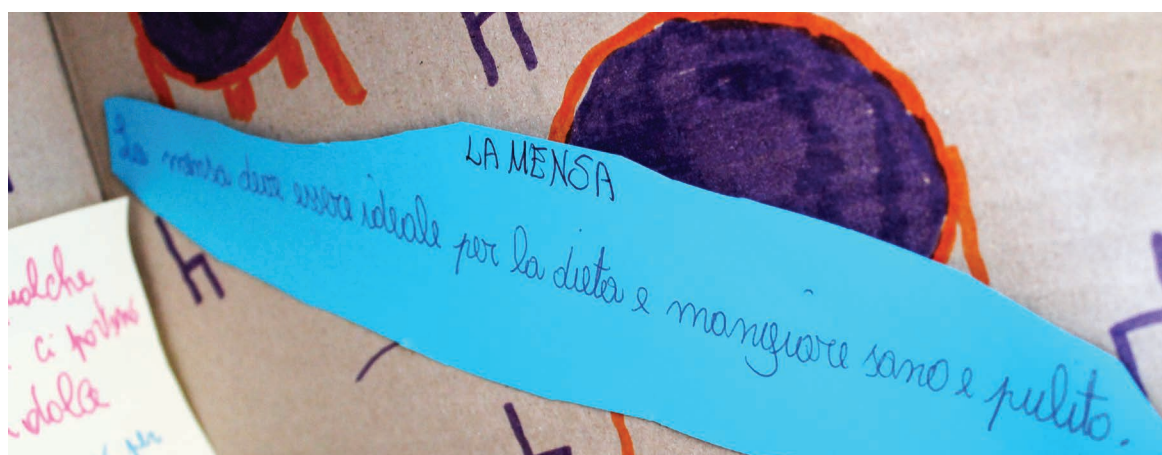 LA MENSA
La mensa deve essere ideale per la dieta e mangiare sano e pulito.
ci portino
dolce
per